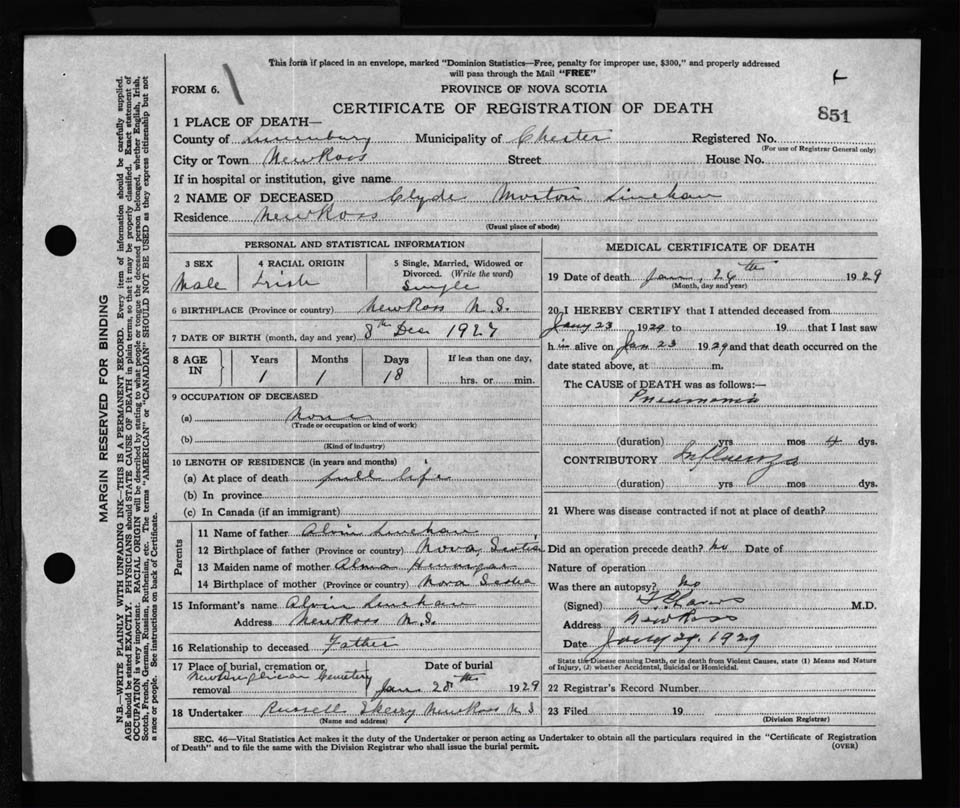 This form if placed in an envelope, marked "Dominion Statistics—Free, penalty for improper use, $300," and properly addressed
will pass through the Mail "FREE"
FORM 6.
PROVINCE OF NOVA SCOTIA
CERTIFICATE OF REGISTRATION OF DEATH
851
1 PLACE OF DEATH—
County of Lunenburg Municipality of Chester Registered No.
(For use of Registrar General only)
City or Town New Ross Street House No.
If in hospital or institution, give name
2 NAME OF DECEASED Clyde Morton Linehan
Residence New Ross
(Usual place of abode)
PERSONAL AND STATISTICAL INFORMATION
3 SEX 4 RACIAL ORIGIN 5 Single, Married, Widowed or
Divorced. (Write the word)
Male Irish Single
6 BIRTHPLACE (Province or country) New Ross N.S.
7 DATE OF BIRTH (month, day and year) 8th Dec 1927
8 AGE IN Years Months Days If less than one day,
1 1 18 hrs. or min.
9 OCCUPATION OF DECEASED
(a) None
(Trade or occupation or kind of work)
(b)
(Kind of industry)
10 LENGTH OF RESIDENCE (in years and months)
(a) At place of death full life
(b) In province
(c) In Canada (if an immigrant)
Parents
11 Name of father Alvin Linehan
12 Birthplace of father (Province or country) Nova Scotia
13 Maiden name of mother Alma Hennigar
14 Birthplace of mother (Province or country) Nova Scotia
15 Informant's name Alvin Linehan
Address New Ross N.S.
16 Relationship to deceased Father
17 Place of burial, cremation or removal Date of burial
Cemetery Jan 28th 1929
18 Undertaker Russell Skerry New Ross N S
(Name and address)
MEDICAL CERTIFICATE OF DEATH
19 Date of death Jan. 26th 1929
(Month, day and year)
20 I HEREBY CERTIFY that I attended deceased from
Jany 23 1929 to 19 that I last saw
him alive on Jan 23 1929 and that death occurred on the
date stated above, at m.
The CAUSE of DEATH was as follows:—
Pneumonia
(duration) yrs mos 4 dys.
CONTRIBUTORY Influenza
(duration) yrs mos dys.
21 Where was disease contracted if not at place of death?
Did an operation precede death? No Date of
Nature of operation
Was there an autopsy? No
(Signed) M.D.
Address New Ross
Date 1929
State the Disease causing Death, or in death from Violent Causes, state (1) Means and Nature
of Injury, (2) whether Accidental, Suicidal or Homicidal.
22 Registrar's Record Number
23 Filed 19
(Division Registrar)
SEC. 46—Vital Statistics Act makes it the duty of the Undertaker or person acting as Undertaker to obtain all the particulars required in the "Certificate of Registration
of Death" and to file the same with the Division Registrar who shall issue the burial permit. (OVER)
MARGIN RESERVED FOR BINDING
N.B.—WRITE PLAINLY WITH UNFADING INK—THIS IS A PERMANENT RECORD. Every item of information should be carefully supplied.
AGE should be stated EXACTLY. PHYSICIANS should STATE CAUSE OF DEATH in plain terms, so that it may be properly classified. Exact statement of
OCCUPATION is very important. RACIAL ORIGIN will be described by stating to what people or tongue the deceased person belonged, whether English, Irish,
Scotch, French, German, Russian, Ruthenian, etc. The terms "AMERICAN" or "CANADIAN" SHOULD NOT BE USED as they express citizenship but not
a race or people. See instructions on back of Certificate.